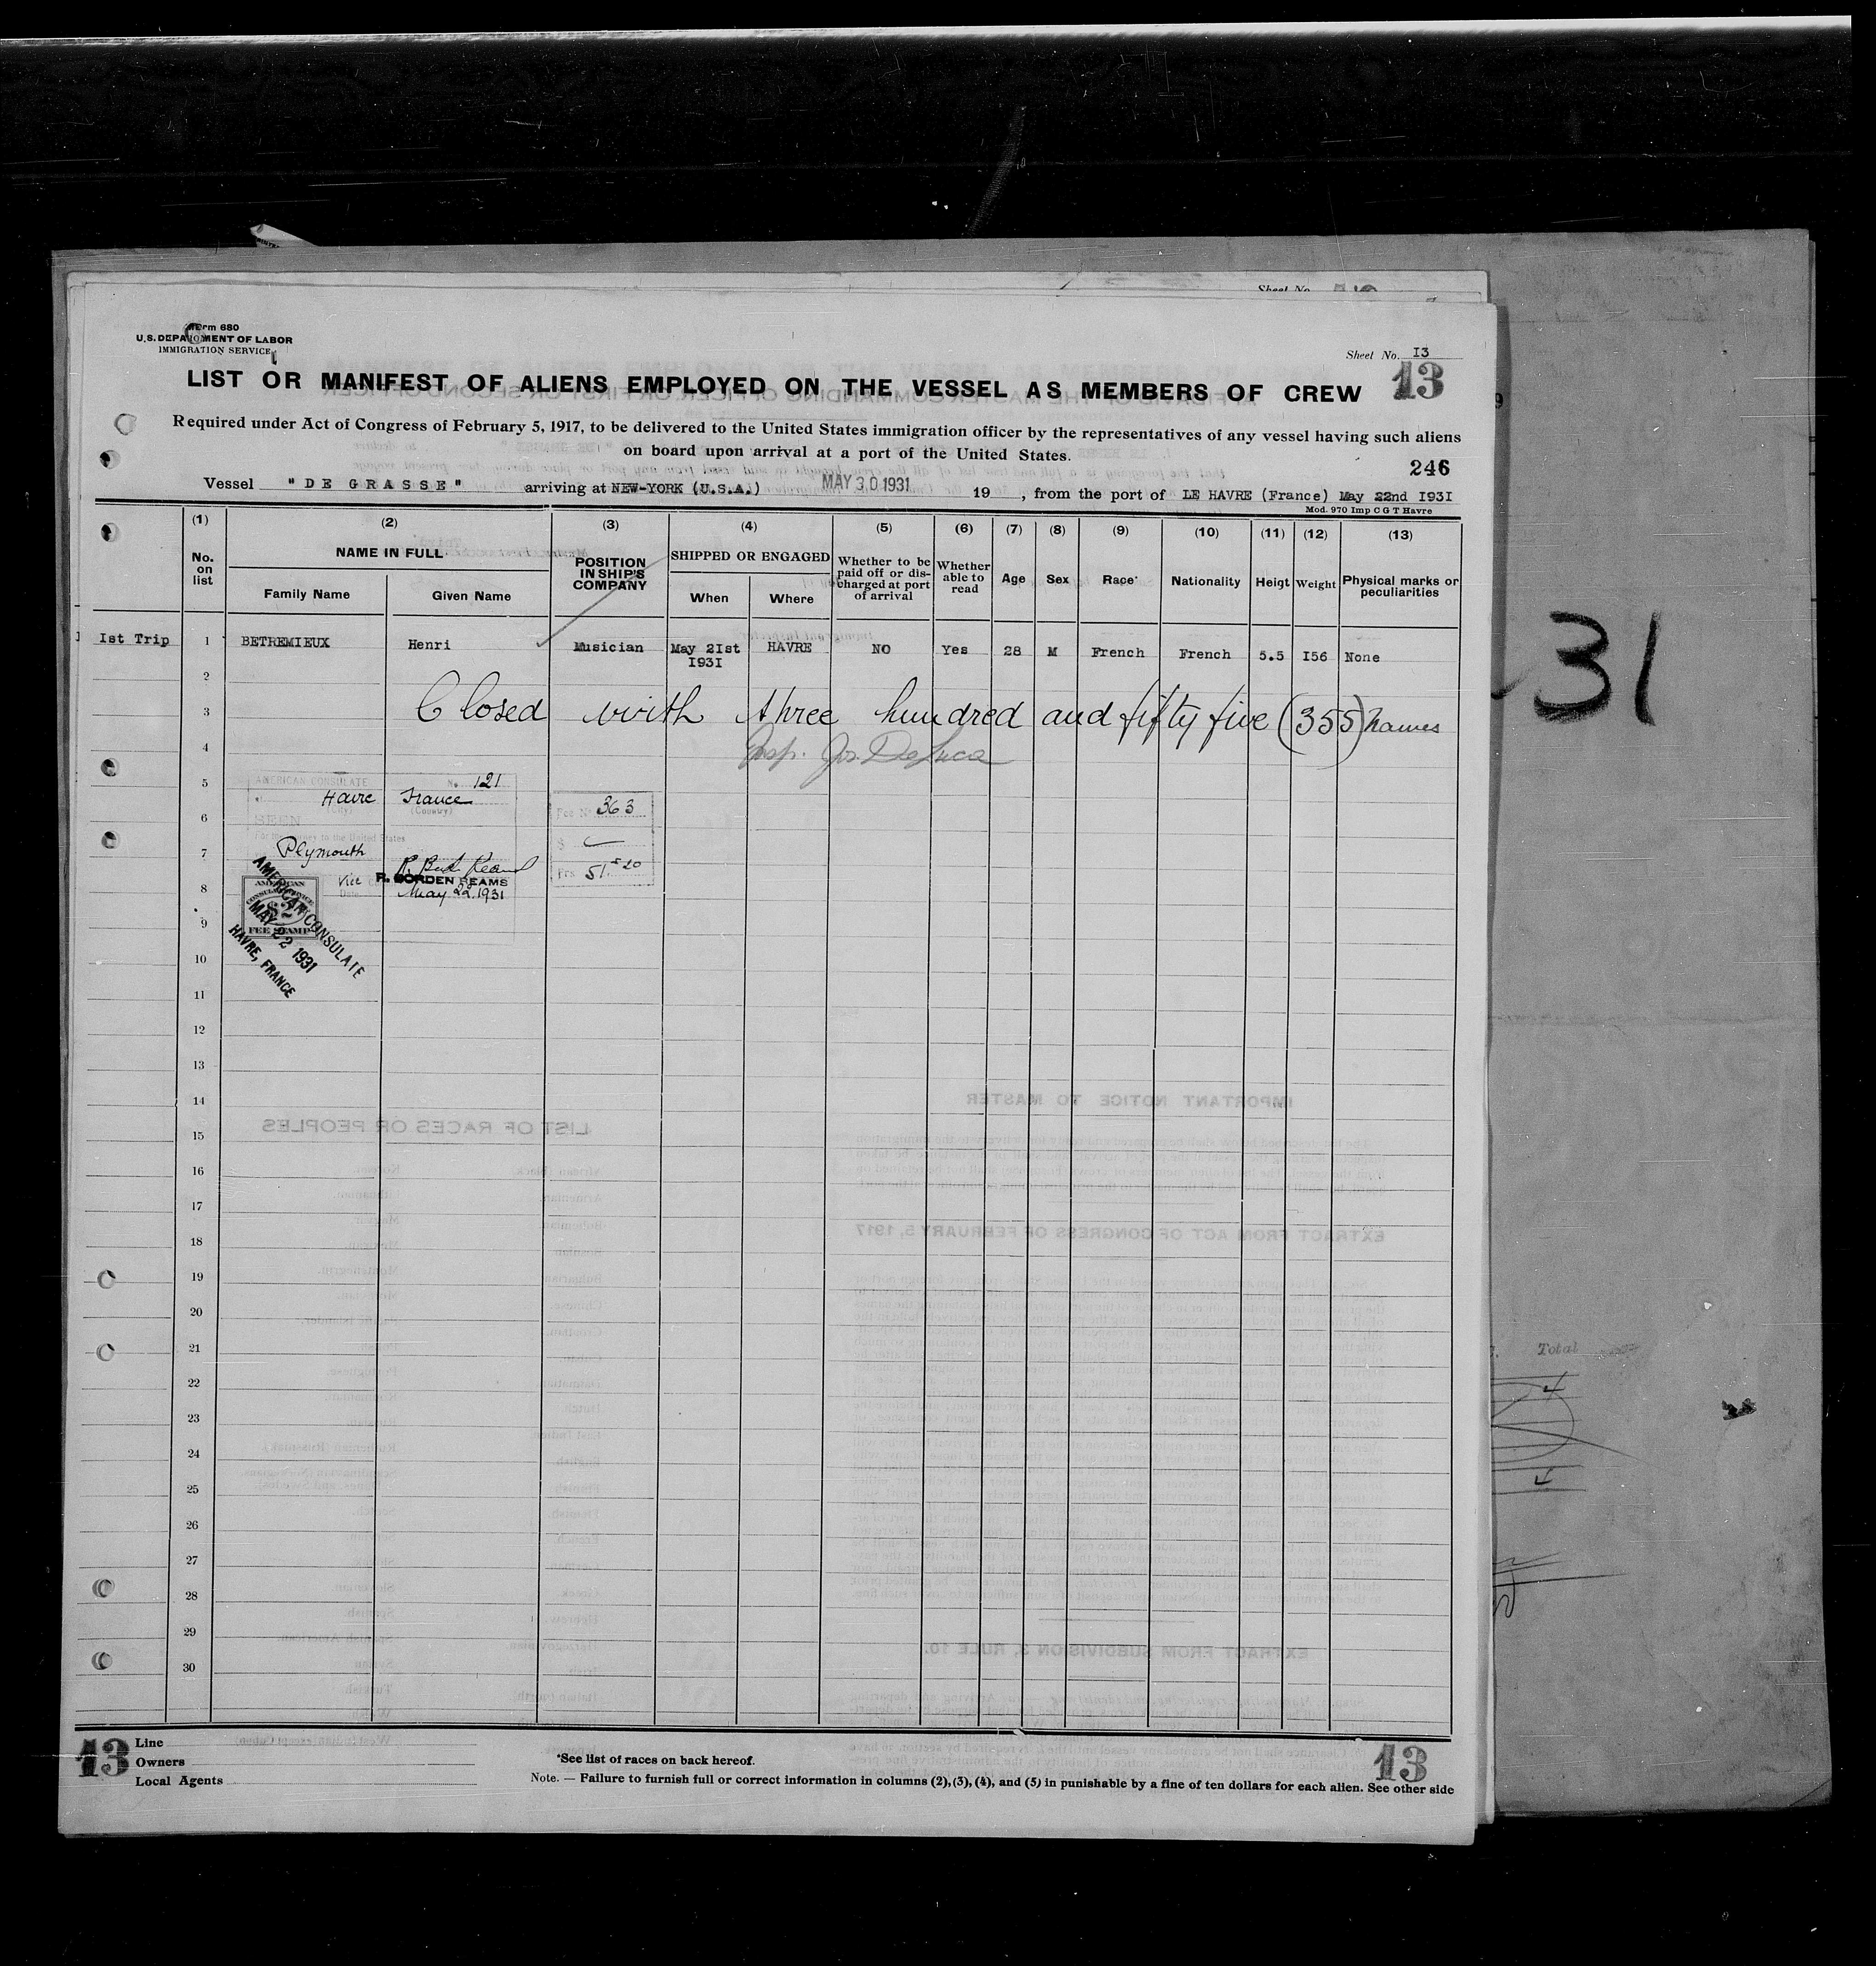 Form 680
U.S. DEPARTMENT OF LABOR
IMMIGRATION SERVICE
Sheet No. I3
13
LIST OR MANIFEST OF ALIENS EMPLOYED ON THE VESSEL AS MEMBERS OF CREW
Required under Act of Congress of February 5, 1917, to be delivered to the United States immigration officer by the representatives of any vessel having such aliens
on board upon arrival at a port of the United States.
246
Vessel "DE GRASSE" arriving at NEW-YORK (U.S.A.) MAY 30 1931 19 , from the port of LE HAVRE (France) May 22nd I93I
Mod. 970 Imp C G T Havre
(1) (2) (3) (4) (5) (6) (7) (8) (9) (10) (11) (12) (13)
No. on list
NAME IN FULL
Family Name
Given Name
POSITION IN SHIP'S COMPANY
SHIPPED OR ENGAGED
When
Where
Whether to be paid off or dis-charged at port of arrival
Whether able to read
Age
Sex
Race*
Nationality
Heigt
Weight
Physical marks or peculiarities
Ist Trip 1 BETREMIEUX Henri Musician May 2Ist I93I HAVRE NO Yes 28 M French French 5.5 I56 None
2
3 Closed with three hundred and fifty five (355) names
4 Insp. Jos. DeLuca
5
AMERICAN CONSULATE No. 121
Havre France
(City) (Country)
6
SEEN
For the journey to the United States
Fee No. 363
$
Frs 51.20
7
Plymouth
Vice
R. BORDEN REAMS
Date May 22. 1931
8
AMERICAN CONSULAR SERVICE
$2
FEE STAMP
AMERICAN CONSULATE
MAY 22 1931
HAVRE, FRANCE
9
10
11
12
13
14
15
16
17
18
19
20
21
22
23
24
25
26
27
28
29
30
13
Line
Owners
Local Agents
*See list of races on back hereof.
13
Note. — Failure to furnish full or correct information in columns (2), (3), (4), and (5) in punishable by a fine of ten dollars for each alien. See other side
Sheet No.
31
Total